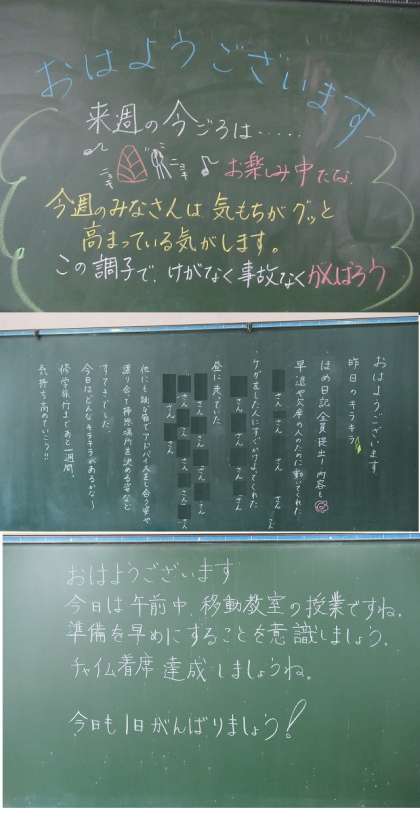 おはようございます
来週の今ごろは‥‥‥
ニョキ ニョキ
お楽しみ中だな。
今週のみなさんは 気もちが グッと
高まっている気がします。
この調子で、けがなく事故なく がんばろう
おはようございます
昨日のキラキラ
・ほめ日記全員提出!内容も
早退や欠席の人のために動いてくれた
さん さん さん さん
・ケガをした人にすぐかけよってくれた
さん さん さん さん
・昼に来てた
さん さん さん さん
さん さん さん さん
さん さん
他にも調べ
すてきでした。
今日はどんなキラキラがあるかな〜
修学旅行まであと一週間。
気持ち高めていこう!!
おはようございます
今日は午前中、移動教室の授業ですね。
準備を早めにすることを意識しましょう。
チャイム着席 達成しましょうね。
今日も1日がんばりましょう!